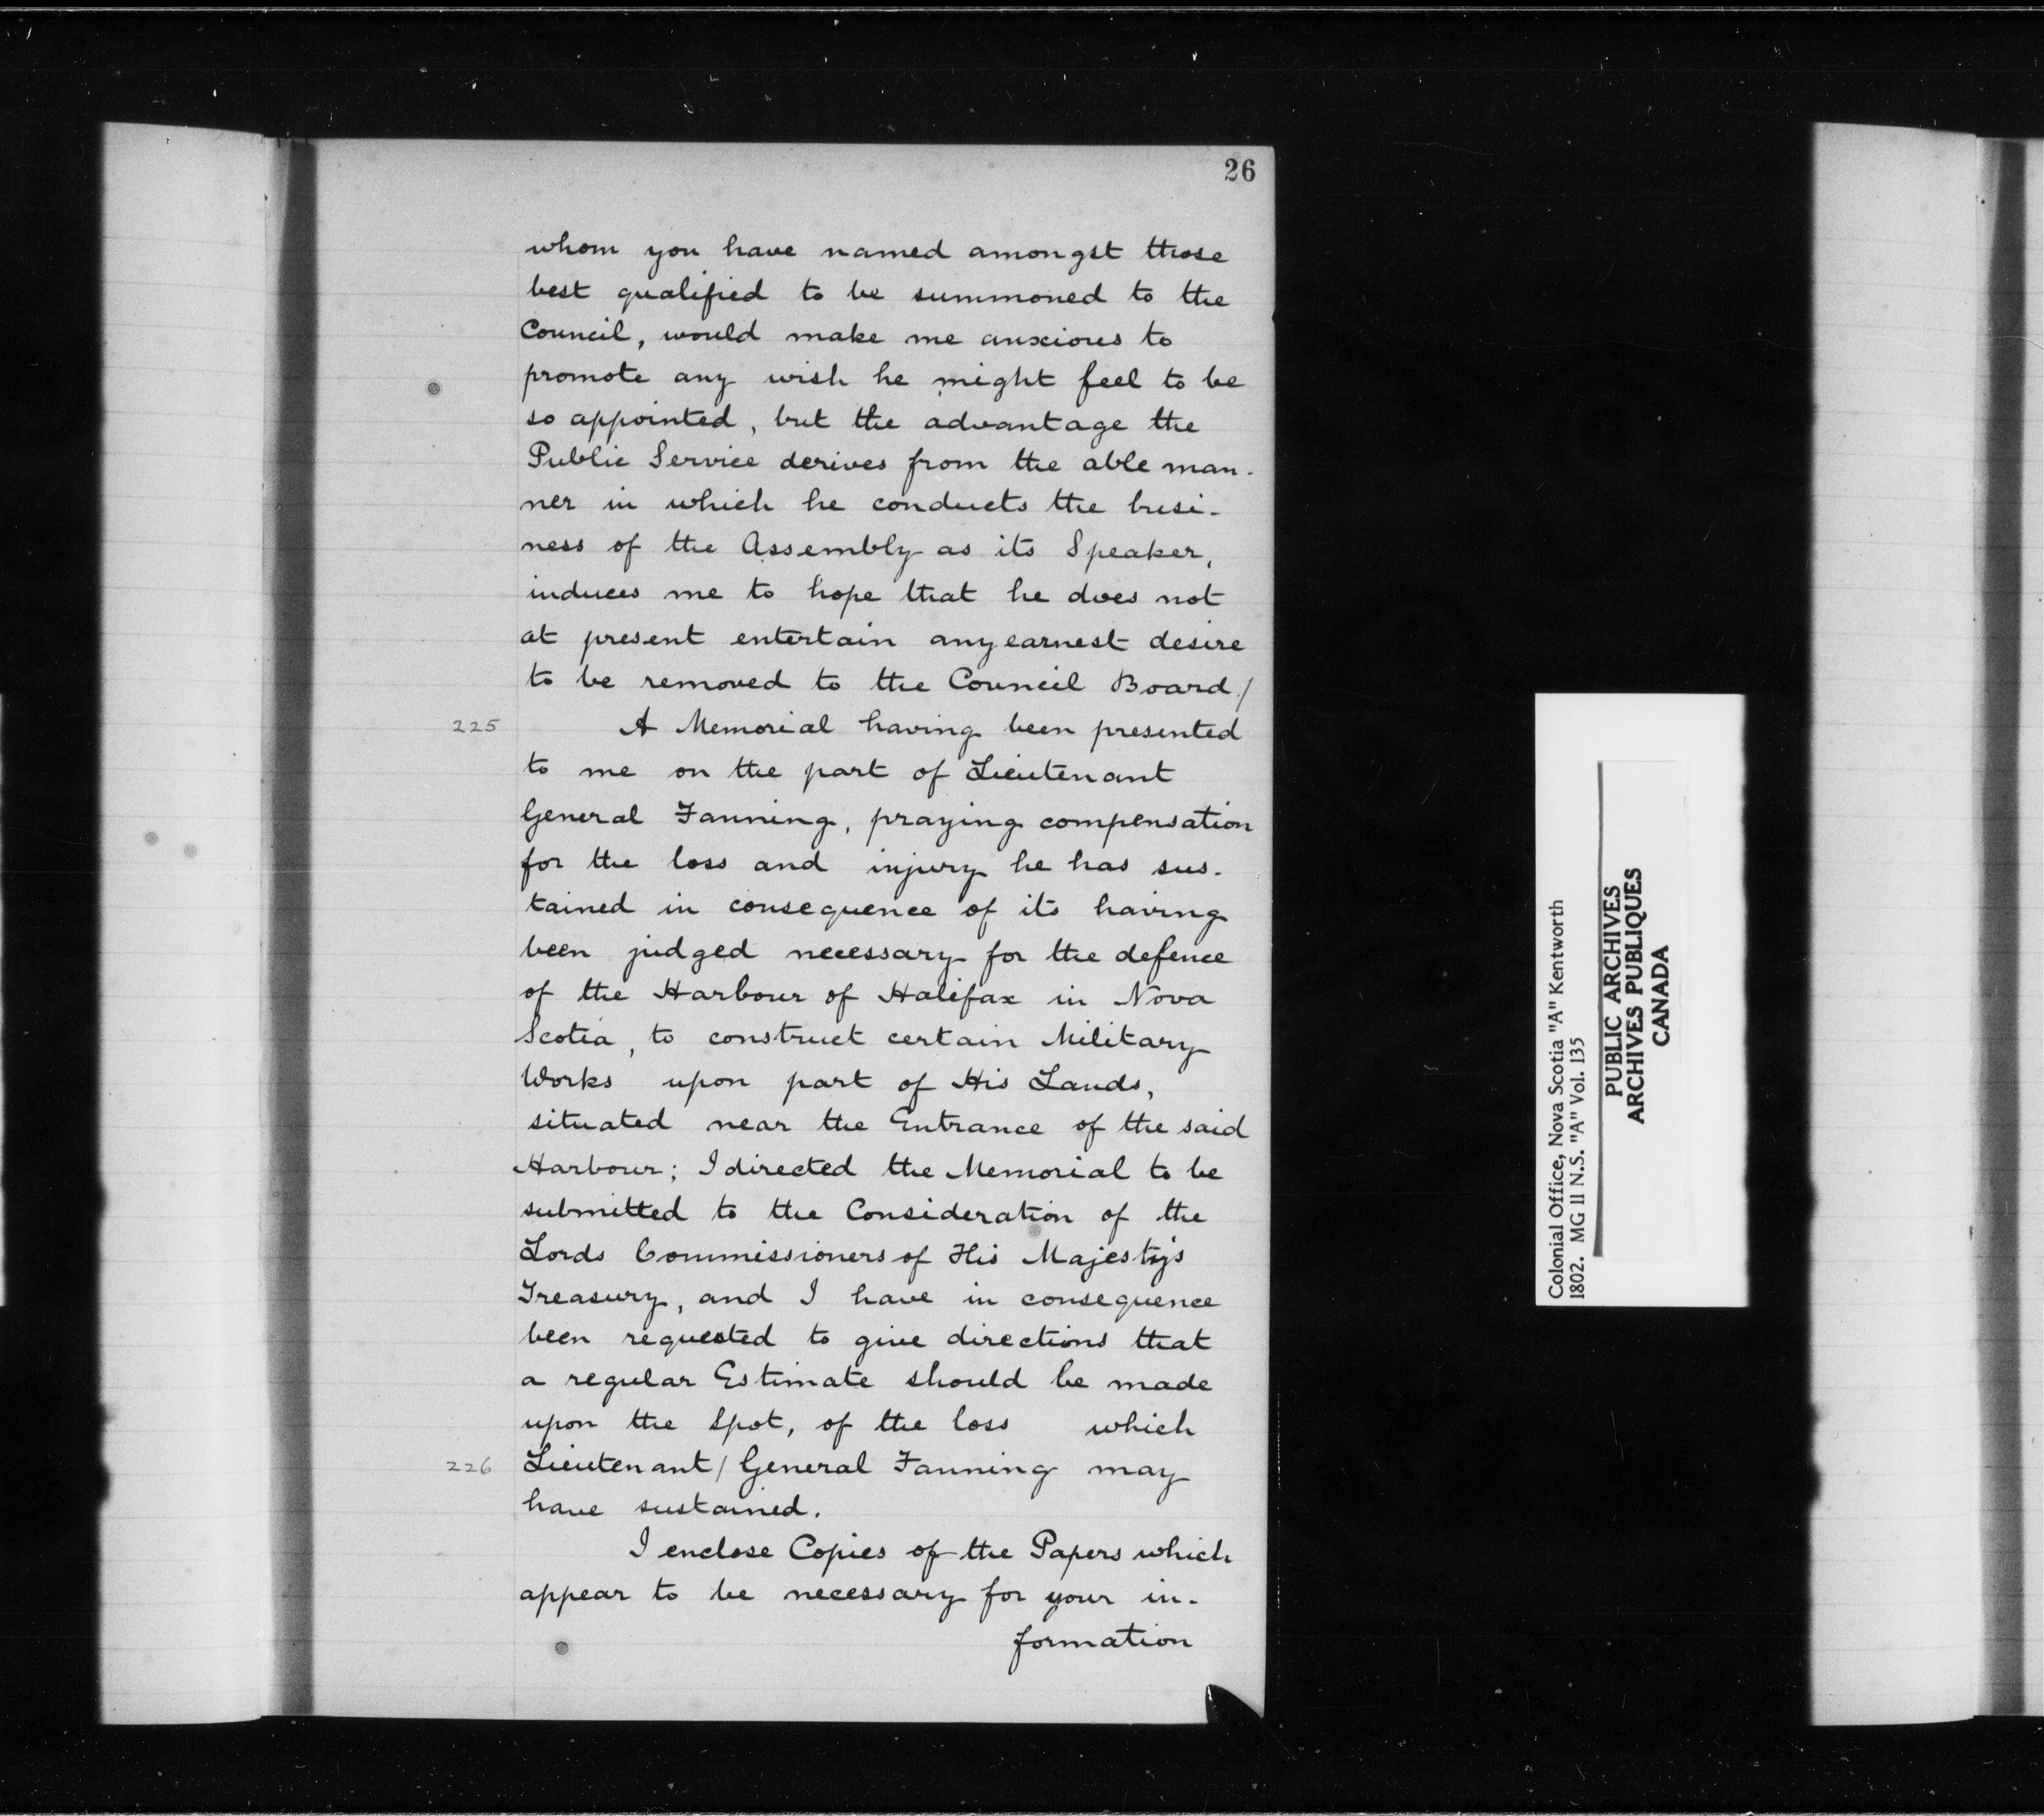 26
whom you have named amongst those
best qualified to be summoned to the
Council, would make me anxious to
promote any wish he might feel to be
so appointed, but the advantage the
Public Service derives from the able man-
ner in which he conducts the busi-
ness of the Assembly as its Speaker,
induces me to hope that he does not
at present entertain any earnest desire
to be removed to the Council Board./
225 A Memorial having been presented
to me on the part of Lieutenant
General Fanning, praying compensation
for the loss and injury he has sus-
tained in consequence of its having
been judged necessary for the defence
of the Harbour of Halifax in Nova
Scotia, to construct certain Military
Works upon part of His Lands,
situated near the Entrance of the said
Harbour; I directed the Memorial to be
submitted to the Consideration of the
Lords Commissioners of His Majesty's
Treasury, and I have in consequence
been requested to give directions that
a regular Estimate should be made
upon the Spot, of the loss which
226 Lieutenant/General Fanning may
have sustained.
I enclose Copies of the Papers which
appear to be necessary for your in-
formation
Colonial Office, Nova Scotia "A" Kentworth
1802. MG 11 N.S. "A" Vol. 135
PUBLIC ARCHIVES
ARCHIVES PUBLIQUES
CANADA